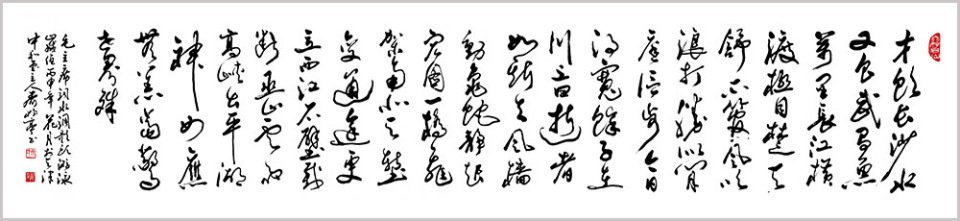 才飲长沙水
又食武昌魚
萬里長江横
渡極目楚天
舒不管風吹
浪打勝似闲
庭信步今日
得寬餘子在
川上曰逝者
如斯夫風樯
動龜蛇静起
宏圖一橋飛
架南北天塹
变通途更
立西江石壁截
断巫山云雨
高峡出平湖
神女應
無恙當驚
世界殊
毛主席词水调歌头游泳
丙申年花月书
主人